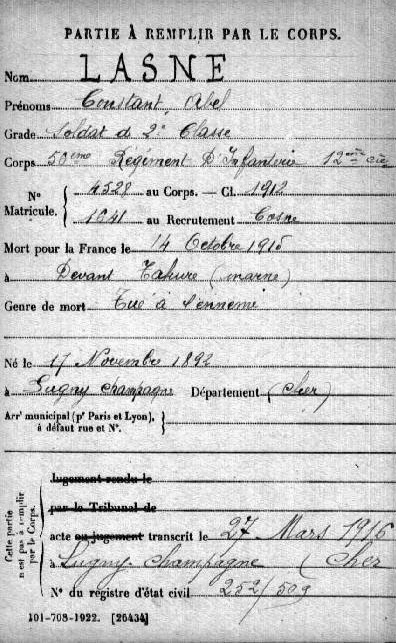 PARTIE À REMPLIR PAR LE CORPS.
Nom LASNE
Prénoms Constant, Abel
Grade Soldat de 2e Classe
Corps 50ème Régiment D'Infanterie 12ème Cie
Nº Matricule. { 4528 au Corps. — Cl. 1912
1641 au Recrutement Cosne
Mort pour la France le 14 Octobre 1915
à Devant Tahure (Marne)
Genre de mort Tué à l'ennemi
Né le 17 Novembre 1892
à Lugny Champagne Département (Cher)
Arrt municipal (pr Paris et Lyon), à défaut rue et Nº. }
Cette partie n'est pas à remplir par le Corps.
jugement rendu le
par le Tribunal de
acte ou jugement transcrit le 27 Mars 1916
à Lugny-Champagne (Cher
Nº du registre d'état civil 252/509
101-708-1922. [26434]